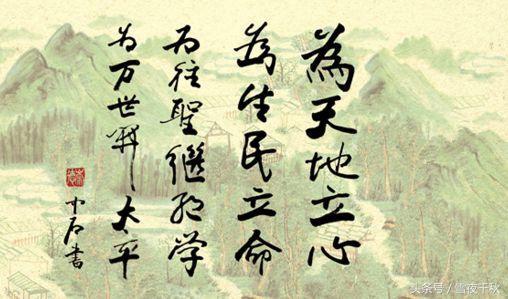 為天地立心
為生民立命
为往聖繼絕学
为万世開太平
中石書
头条号／雪夜千秋